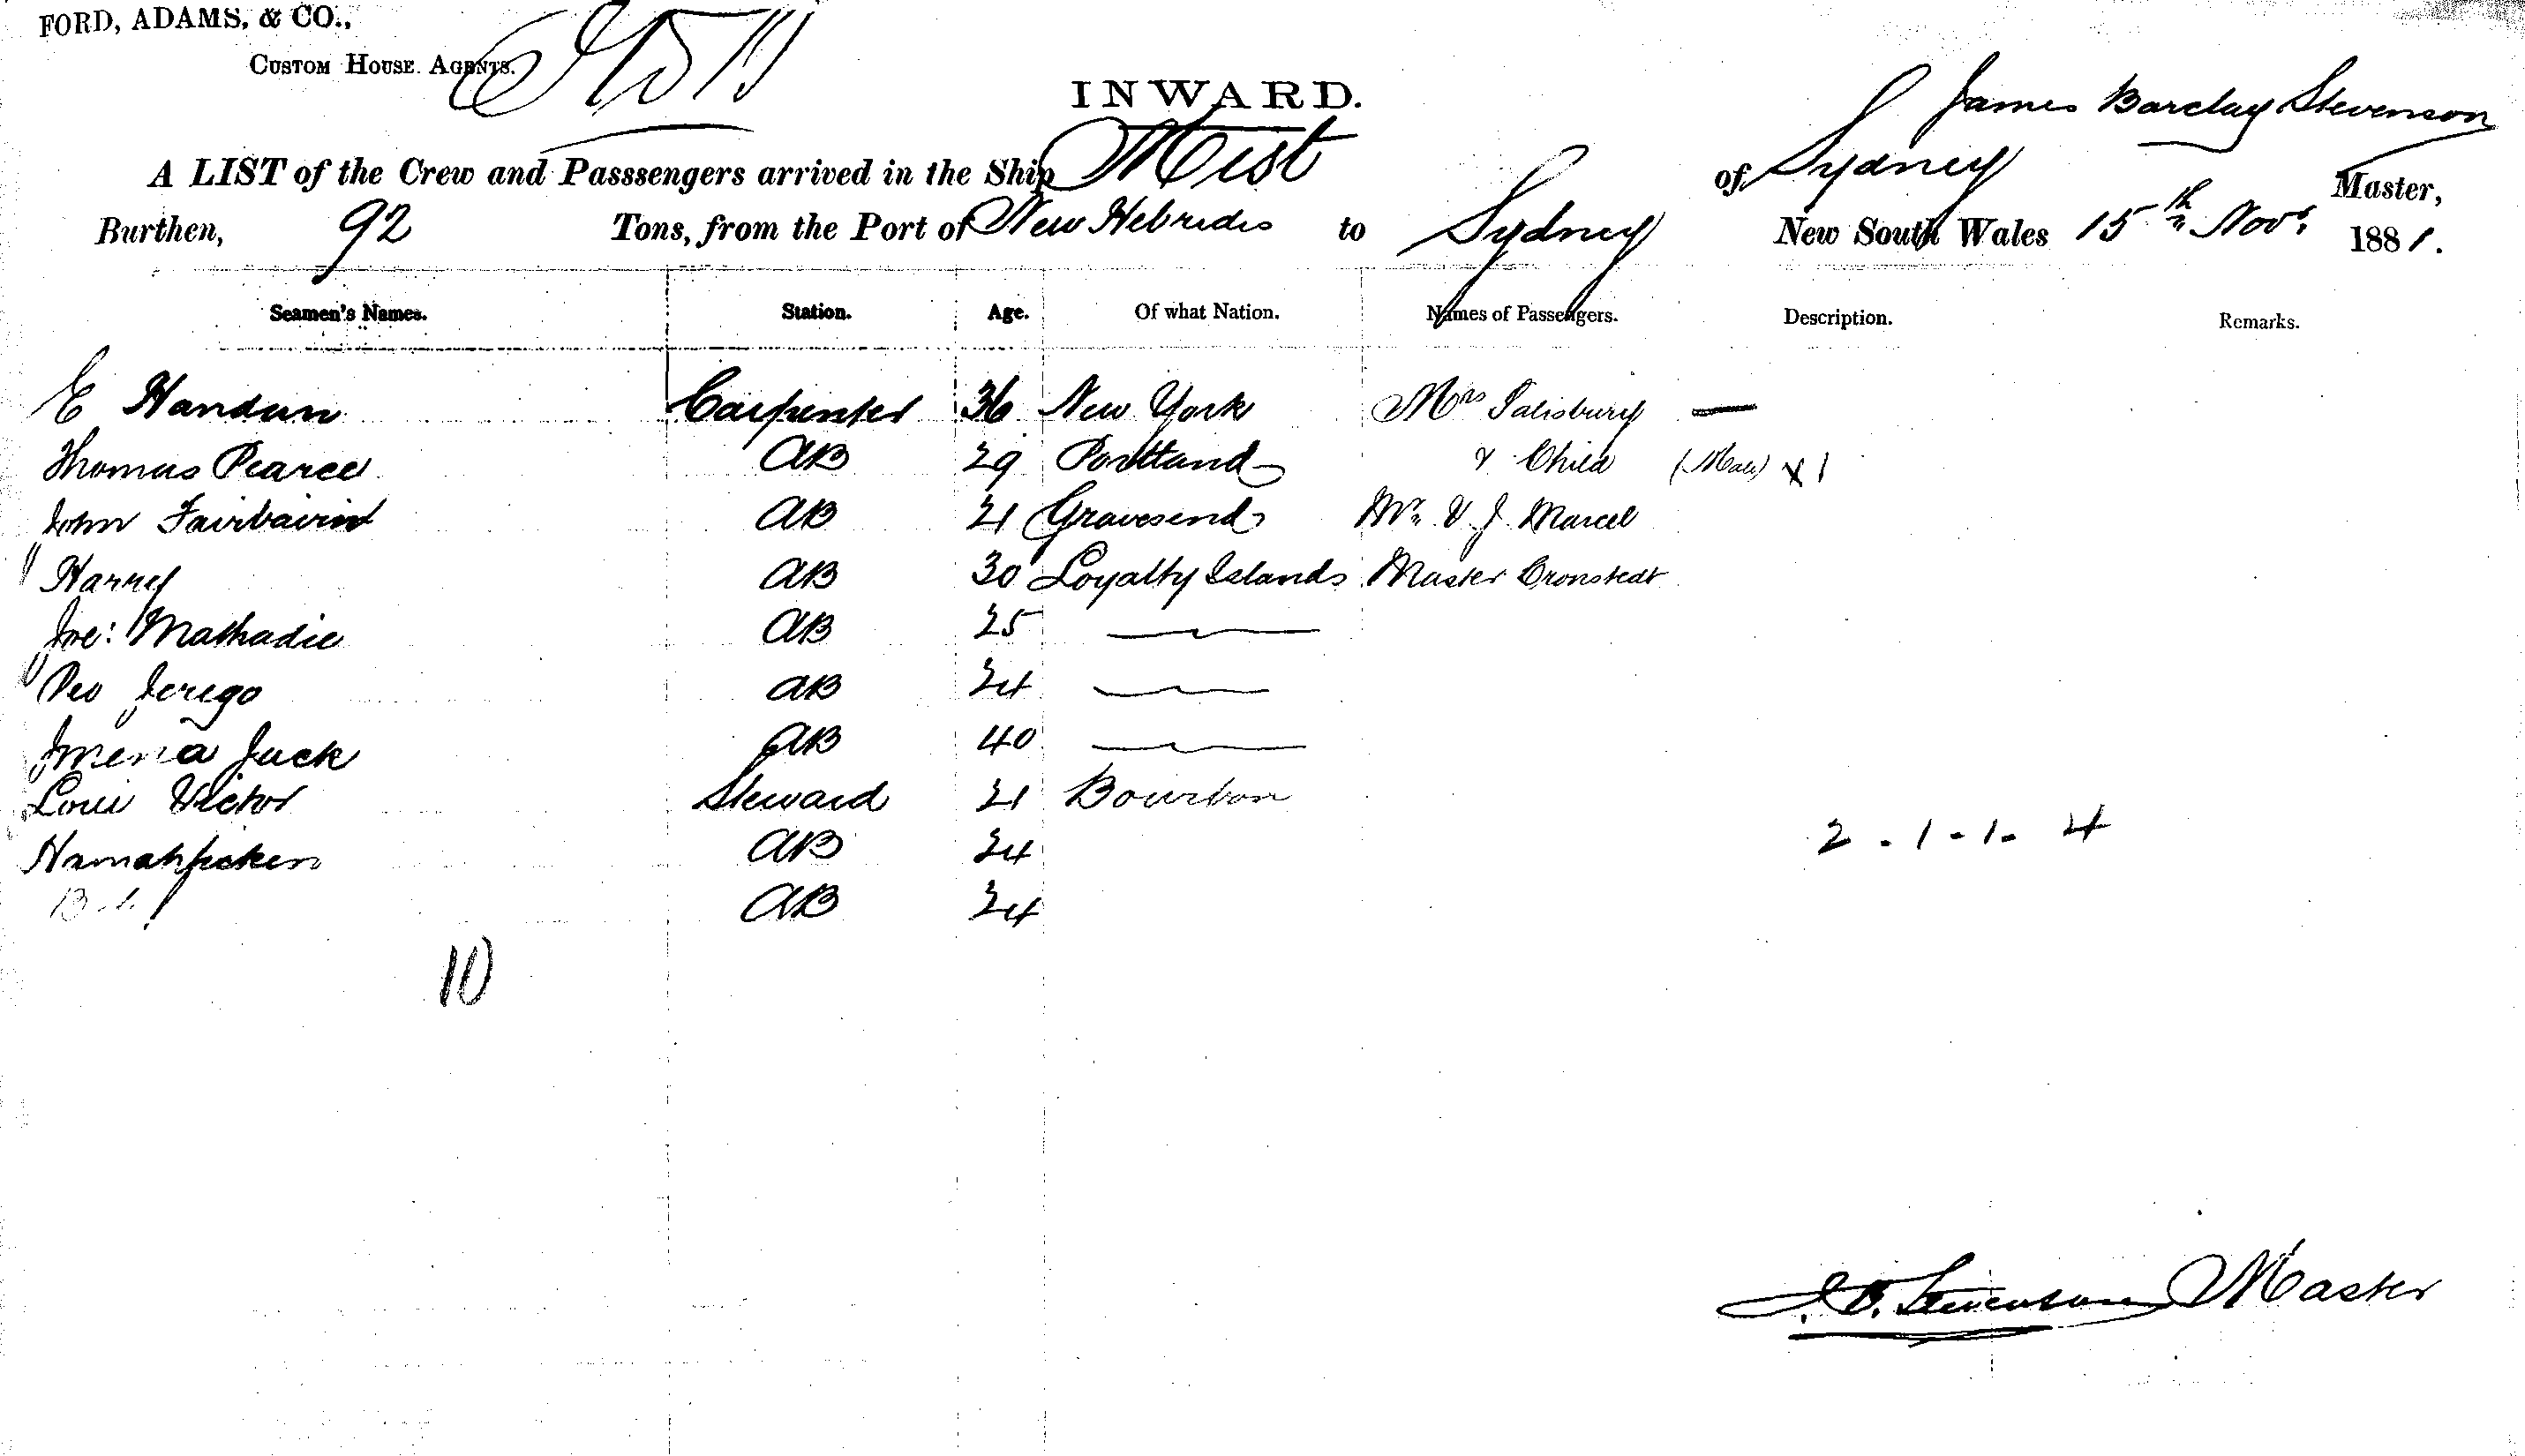 FORD, ADAMS, & CO.,
CUSTOM HOUSE AGENTS.
INWARD.
James Barclay Stevenson
A LIST of the Crew and Passsengers arrived in the Ship Mist of Sydney Master,
Burthen, 92 Tons, from the Port of New Hebrides to Sydney New South Wales 15th Novr 1881.
Seamen's Names. Station. Age. Of what Nation. Names of Passengers. Description. Remarks.
E Carpenter 36 New York Mrs Salisbury —
Thomas Pearce AB 29 Portland & Child (Male) x 1
John Fairbairn AB 21 Gravesend Mr V. J. Marcel
" Harry AB 30 Loyalty Islands Master Cronstedt
Joe: Mathadie AB 25 —
" AB 24 —
Jack AB 40 —
Loui Victor Steward 21 Bourbon
AB 24 2 . 1 - 1 - 4
AB 24
10
J. B. Stevenson Master